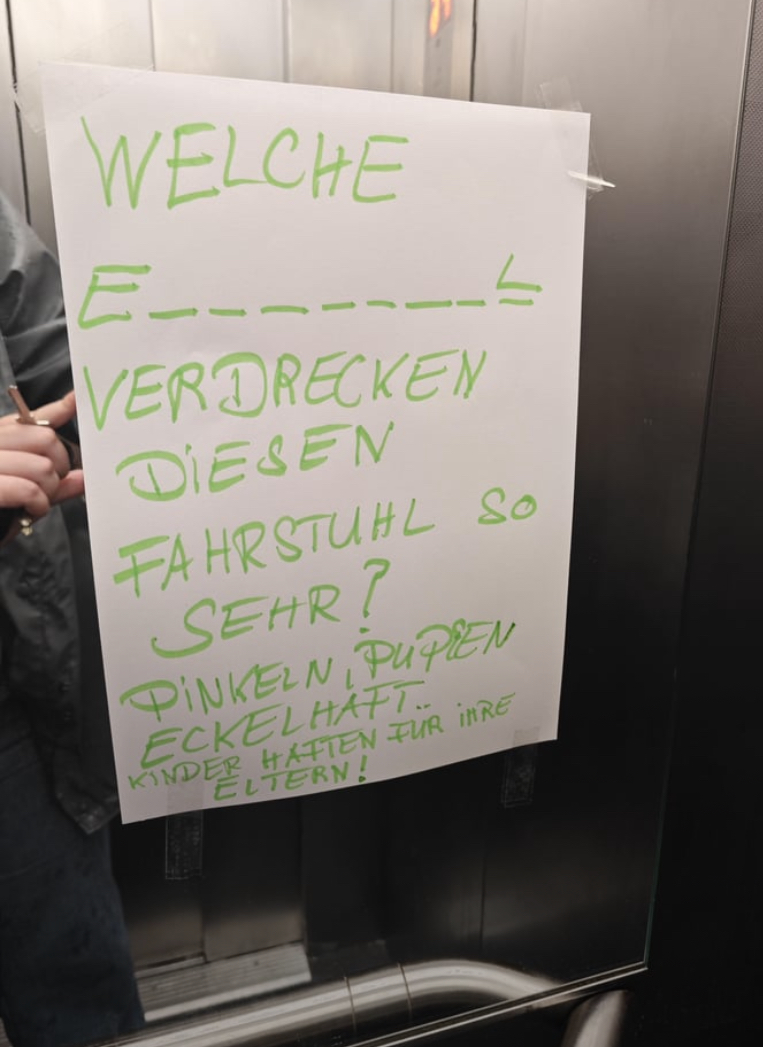 WELCHE
E_______L
VERDRECKEN
DIESEN
FAHRSTUHL SO
SEHR?
PINKELN, PUPSEN
ECKELHAFT..
KINDER HAFTEN FÜR IHRE
ELTERN!